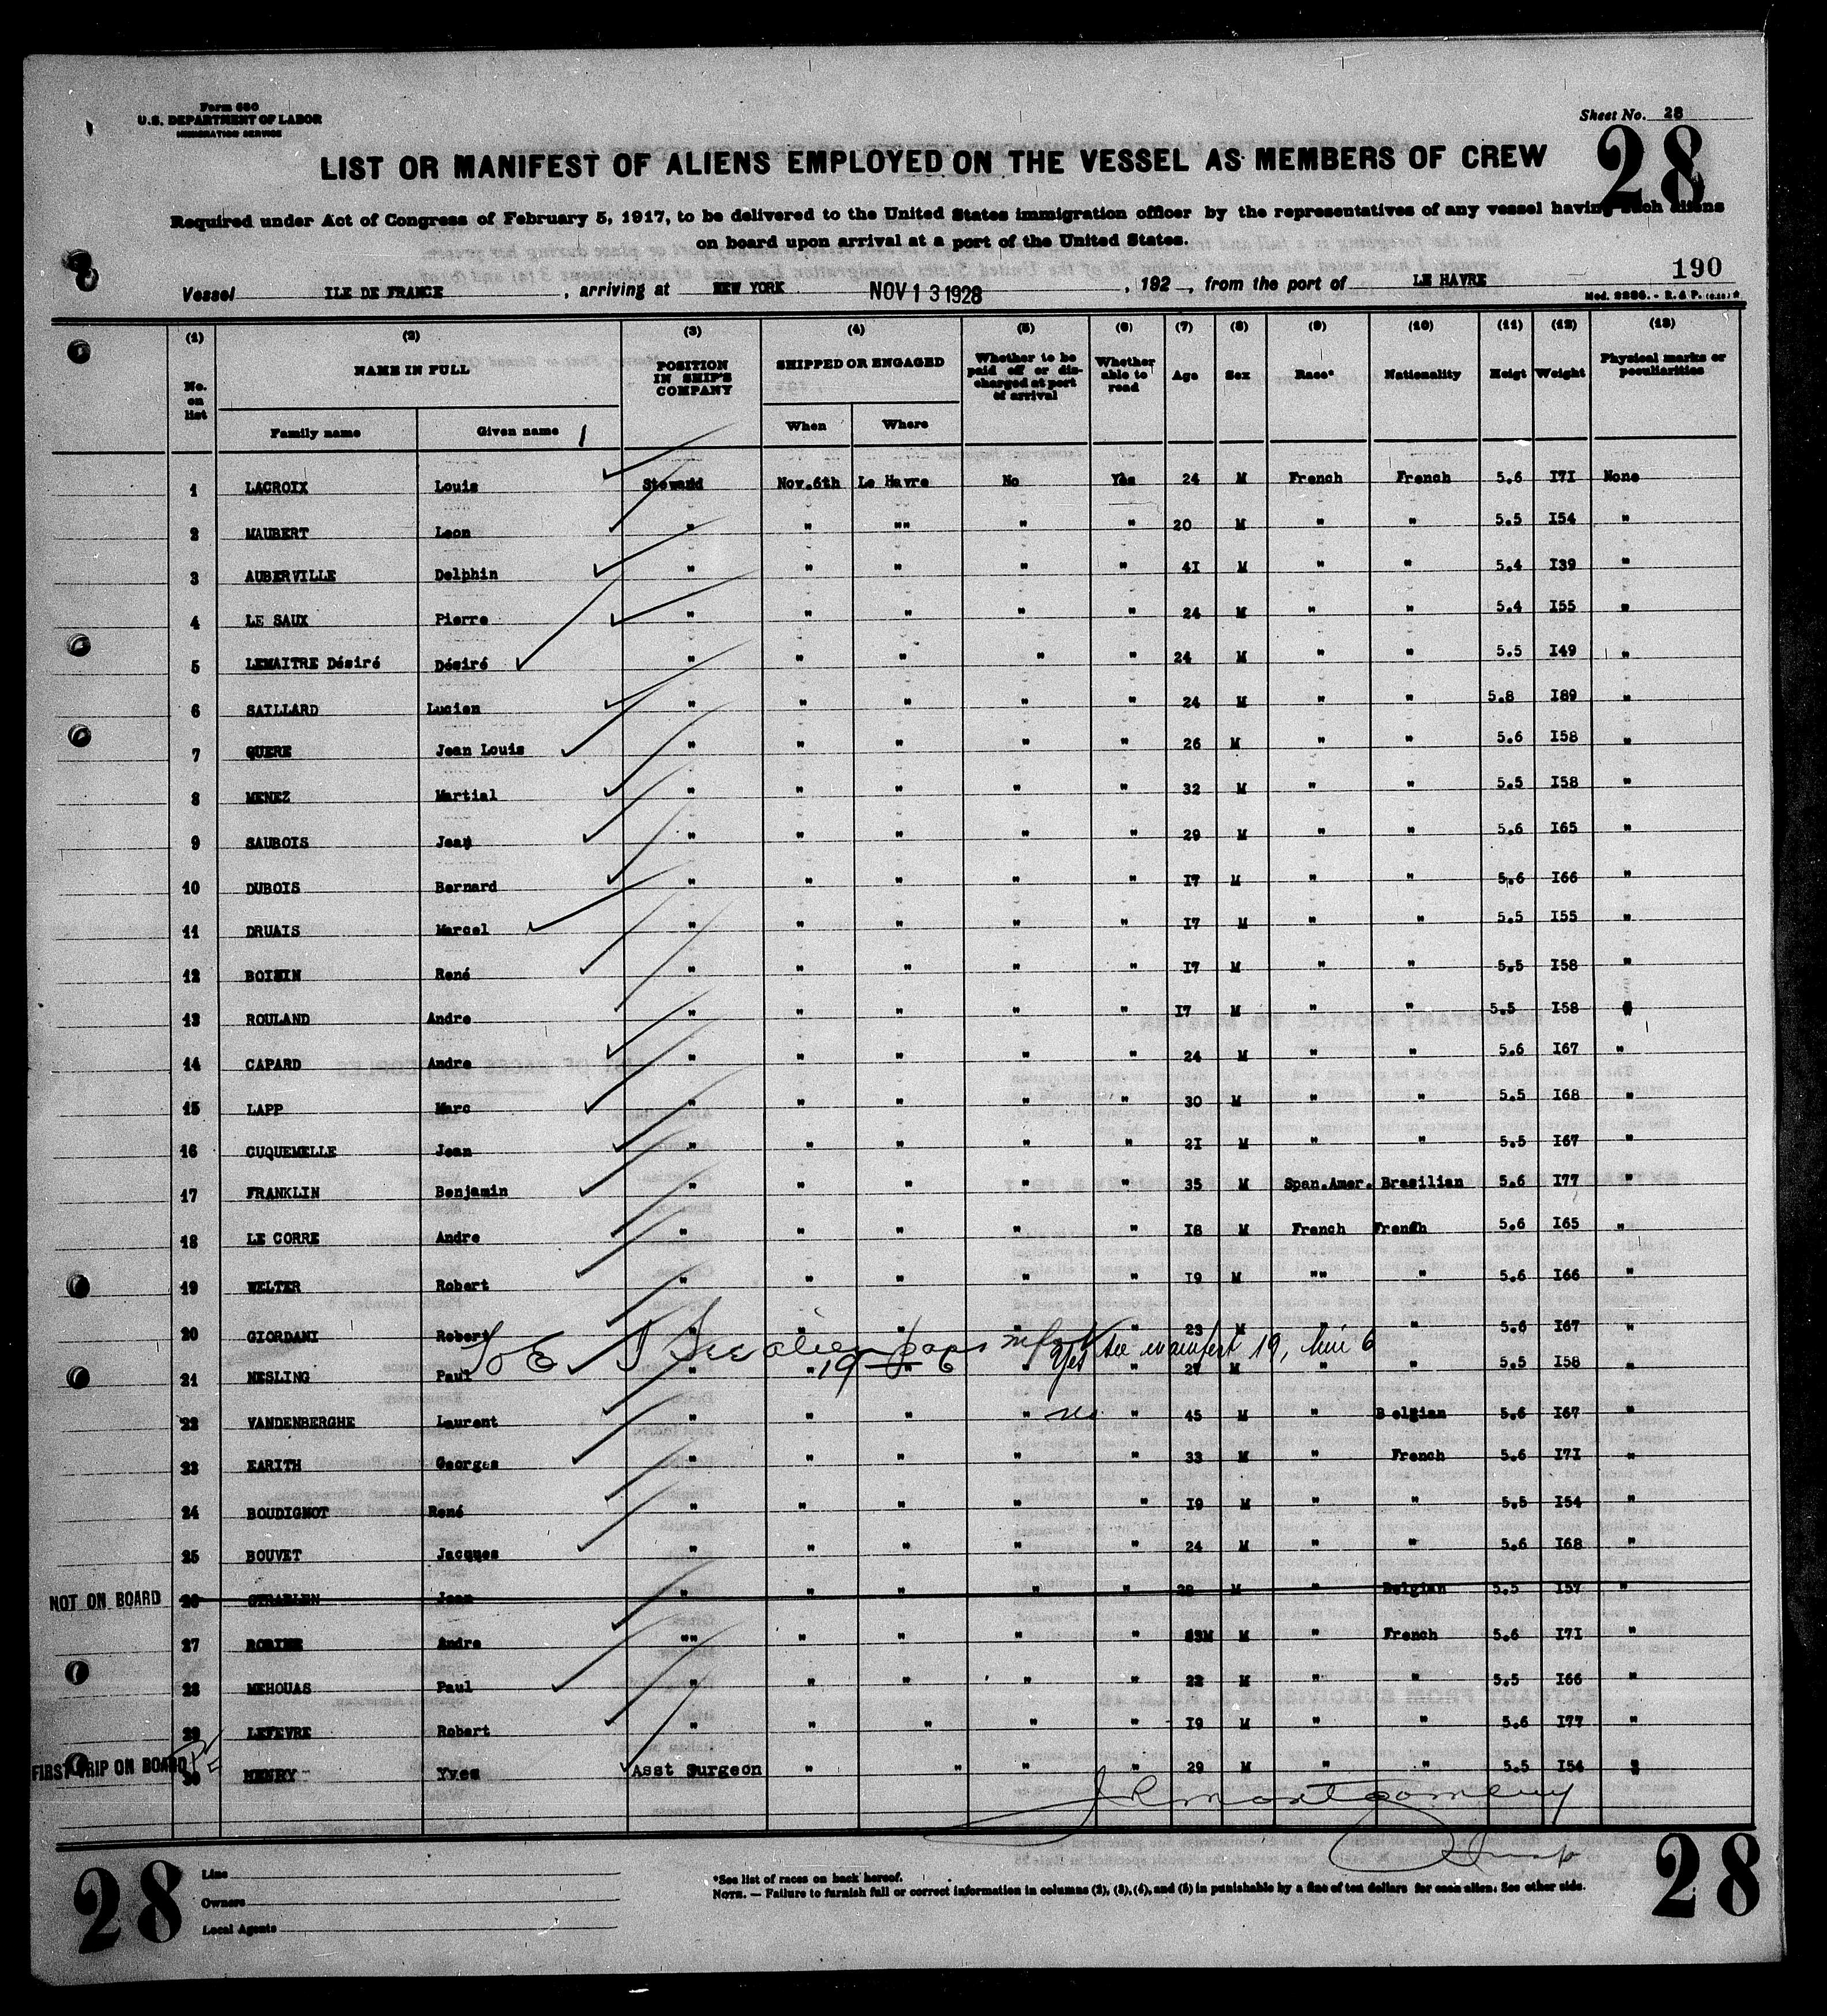 Form 680
U.S. DEPARTMENT OF LABOR
IMMIGRATION SERVICE
Sheet No. 28
28
LIST OR MANIFEST OF ALIENS EMPLOYED ON THE VESSEL AS MEMBERS OF CREW
Required under Act of Congress of February 5, 1917, to be delivered to the United States immigration officer by the representatives of any vessel having such aliens
on board upon arrival at a port of the United States.
190
Vessel ILE DE FRANCE, arriving at NEW YORK NOV 13 1928, 192 , from the port of LE HAVRE
(1) (2) (3) (4) (5) (6) (7) (8) (9) (10) (11) (12) (13)
No. on list NAME IN FULL POSITION IN SHIP'S COMPANY SHIPPED OR ENGAGED Whether to be paid off or discharged at port of arrival Whether able to read Age Sex Race* Nationality Heigt Weight Physical marks or peculiarities
Family name Given name When Where
1 LACROIX Louis Steward Nov.6th Le Havre No Yes 24 M French French 5.6 I7I None
2 MAUBERT Leon " " "" " " 20 M " " 5.5 I54 "
3 AUBERVILLE Delphin " " " " " 4I M " " 5.4 I39 "
4 LE SAUX Pierre " " " " " 24 M " " 5.4 I55 "
5 LEMAITRE Désiré Désiré " " " " " 24 M " " 5.5 I49 "
6 SAILLARD Lucien " " " " " 24 M " " 5.8 I89 "
7 QUERE Jean Louis " " " " " 26 M " " 5.6 I58 "
8 MENEZ Martial " " " " " 32 M " " 5.5 I58 "
9 SAUBOIS Jean " " " " " 29 M " " 5.6 I65 "
10 DUBOIS Bernard " " " " " I7 M " " 5.6 I66 "
11 DRUAIS Marcel " " " " " I7 M " " 5.5 I55 "
12 René " " " " " I7 M " " 5.5 I58 "
13 ROULAND Andre " " " " " I7 M " " 5.5 I58 "
14 CAPARD Andre " " " " " 24 M " " 5.6 I67 "
15 LAPP Marc " " " " " 30 M " " 5.5 I68 "
16 CUQUEMELLE Jean " " " " " 2I M " " 5.5 I67 "
17 FRANKLIN Benjamin " " " " " 35 M Span.Amer. Brasilian 5.6 I77 "
18 LE CORRE Andre " " " " " I8 M French French 5.6 I65 "
19 WELTER Robert " " " " " I9 M "" " 5.6 I66 "
20 GIORDANI Robert " " " " " 23 M " " 5.6 I67 "
See alien yes see manifest 19, line 6
21 NESLING Paul " " " " " 27 M " " 5.5 I58 "
22 VANDENBERGHE Laurent " " " " " 45 M " Belgian 5.6 I67 "
23 EARITH Georges " " " " " 33 M " French 5.6 I7I "
24 BOUDIGNOT René " " " " " I9 M " " 5.5 I54 "
25 BOUVET Jacques " " " " " 24 M " " 5.6 I68 "
NOT ON BOARD 26 STRAELEN Jean " " " " " 28 M " Belgian 5.5 I57 "
27 ROBINE Andre "" " " " " M " French 5.6 I7I "
28 MEHOUAS Paul " " " " " 22 M " " 5.5 I66 "
29 LEFEVRE Robert " " " " " I9 M " " 5.6 I77 "
FIRST TRIP ON BOARD 30 HENRY Yves Asst Surgeon " " " " 29 M " " 5.5 I54 "
J R Montgomery
Insp
28
Line
Owners
Local Agents
*See list of races on back hereof.
NOTE. — Failure to furnish full or correct information in columns (2), (3), (4), and (5) is punishable by a fine of ten dollars for each alien. See other side.
28